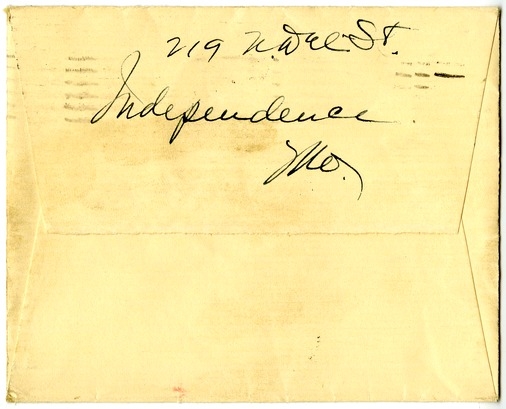 219 N. Del St.
Independence.
Mo.